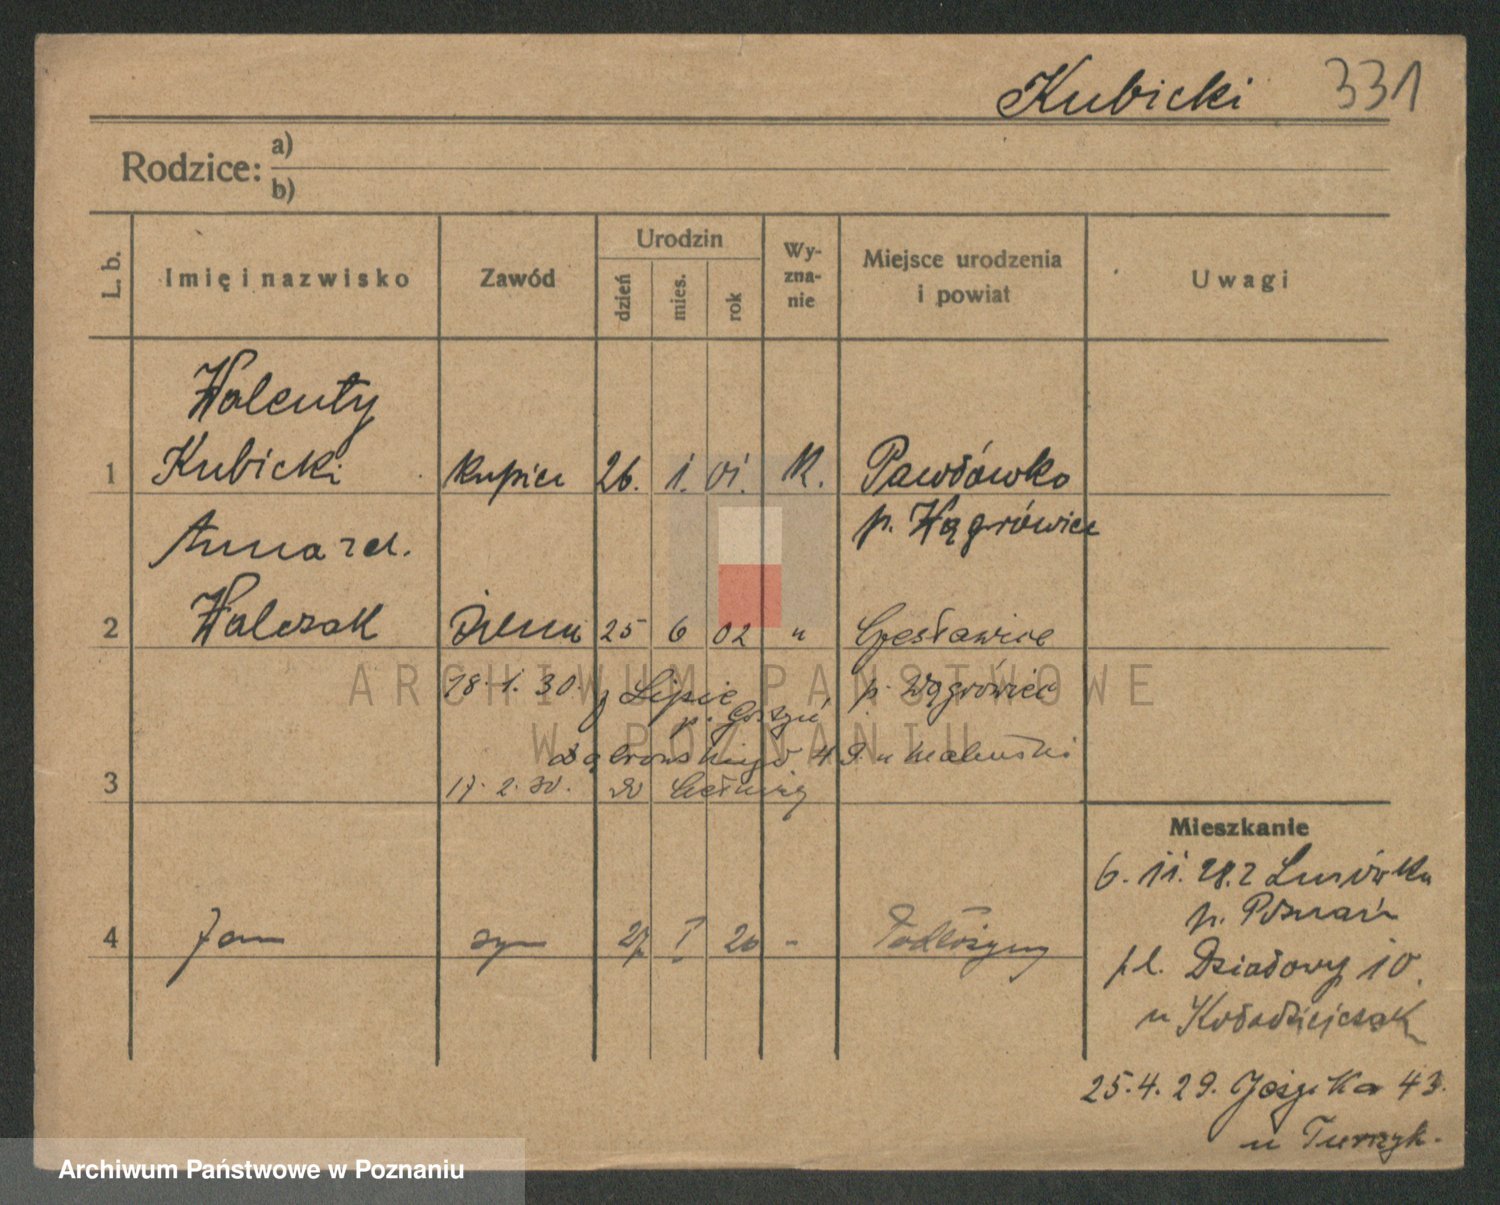 Kubicki 331
Rodzice: a)
b)
L. b.
Imię i nazwisko
Zawód
Urodzin
dzień
mies.
rok
Wy-
zna-
nie
Miejsce urodzenia
i powiat
Uwagi
Walenty
1 Kubicki kupiec 26. 1. 01. K. Pawłówko
p. Wągrówiec
Anna zd.
2 Walczak 25 6 02 " Czesławice
18. 1. 30. z Lipie p. Wągrówiec
p.
Dąbrowskiego 49. u
3 17. 2. 30.
Mieszkanie
6. 11. 28. z Lusówka
p. Poznań
4 Jan syn 27 I 26 - Podłożyny
pl. Działowy 10.
u Kołodziejczak
25. 4. 29. Jeżycka 43.
u Turczyk.
ARCHIWUM PAŃSTWOWE
W POZNANIU
Archiwum Państwowe w Poznaniu